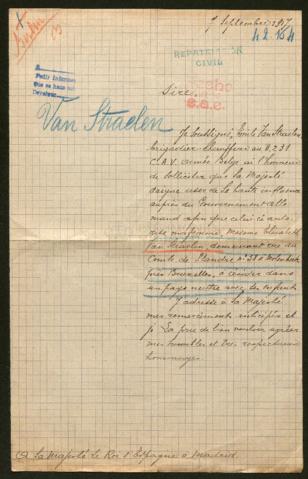 7 Septembre 1917
42.164
REPATRIACION
CIVIL
Petit Informe
Van Straelen
Sire,
Je soussigné, Emile Van Straelen
brigadier chauffeur au B.231
C.A.V. armée Belge ai l'honneur
de solliciter que Sa Majesté
daigne user de Sa haute influence
auprès du Gouvernement alle
mand afin que celui-ci auto
rise ma femme, madame Elisabeth
Van Straelen, demeurant rue du
Comte de Flandre n° 39 à Molenbeek
près Bruxelles, à se rendre dans
un pays neutre avec
J'adresse à Sa Majesté
mes remerciements anticipés et
je La prie de bien vouloir agréer
mes humbles et très respectueux
hommages.
A Sa Majesté Le Roi d'Espagne à Madrid.